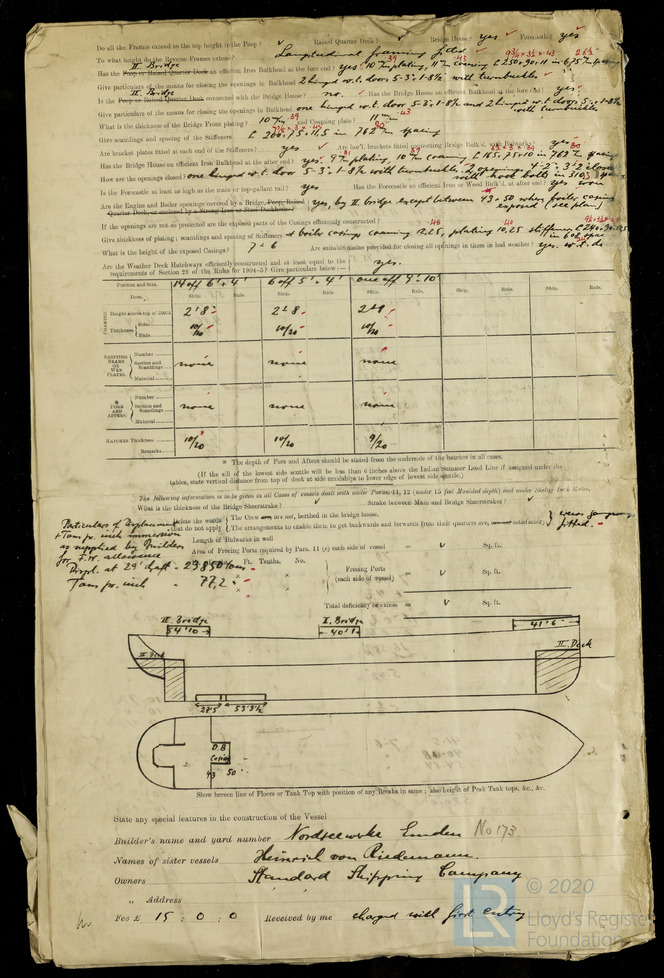 Do all the Frames extend to the top height to the Poop? Raised Quarter Deck? Bridge House? yes Forecastle? yes
To what height do the Reverse Frames extend? Longitudinal framing fitted
II. Bridge
Has the Poop or Raised Quarter Deck an efficient Iron Bulkhead at the fore end? yes 10 m/m plating, 11 m/m coaming
Give particulars of the means for closing the openings in Bulkhead 2 hinged w.t. doors 5-3 x 1-8½ with turnbuckles
II. Bridge
Is the Poop or Raised Quarter Deck connected with the Bridge House? no. Has the Bridge House an efficient Iron Bulkhead at the fore end? yes
Give particulars of the means for closing the openings in Bulkhead one hinged w.t. door 5-3 x 1-8½ and 2 hinged w.t. doors
with turnbuckles
What is the thickness of the Bridge Front plating? 10 m/m and Coaming plate? 11 m/m
Give scantlings and spacing of the Stiffeners L 200.75.11,5 in 762 m/m spacing
Are bracket plates fitted at each end of the Stiffeners? yes
Has the Bridge House an efficient Iron Bulkhead at the after end? yes 9 m/m plating, 10 m/m coaming L 165.75.10 in 762 m/m
How are the openings closed? one hinged w.t. door 5-3 x 1-8½ with turnbuckles, 2 openings
with hood bolts in
Is the Forecastle at least as high as the main or top-gallant rail? yes Has the Forecastle an efficient Iron or Wood Bulk'd. at after end? yes
Are the Engine and Boiler openings covered by a Bridge, Poop, Raised yes, by II bridge except between 43 & 50 where boiler casing
Quarter Deck, or enclosed by a Strong Iron or Steel Deckhouse? exposed (see plan)
If the openings are not so protected are the exposed parts of the Casings efficiently constructed?
Give thickness of plating; scantlings and spacing of Stiffeners at boiler casings coaming 12.5, plating 10,25 stiffener
What is the height of the exposed Casings? 7'-6 Are suitable means provided for closing all openings in them in bad weather? yes. w.t. do
Are the Weather Deck Hatchways efficiently constructed and at least equal to the
requirements of Section 28 of the Rules for 1904-5? Give particulars below:— yes.
Position and Size. 14 off 6' x 4' 6 off 5' x 4' one off 4' x 10'
Item. Ship. Rule. Ship. Rule. Ship. Rule. Ship. Rule. Ship. Rule.
COAMING Height above top of DECK 2'8" 2'8" 2'8"
Thickness Sides Ends 10/20 10/20 10/20
SHIFTING BEAMS OR WEB PLATES. Number Section and Scantlings Material none none none
* FORE AND AFTERS. Number Section and Scantlings Material none none none
HATCHES Thickness 10/20 10/20 9/20
Remarks
* The depth of Fore and Afters should be stated from the underside of the hatches in all cases.
(If the sill of the lowest side scuttle will be less than 6 inches above the Indian Summer Load Line if assigned under the
tables, state vertical distance from top of deck at side amidships to lower edge of lowest side scuttle.)
The following information is to be given in all Cases of vessels dealt with under Paras. 11, 12 (under 15 feet Moulded depth) and under Shelter Deck Rules.
What is the thickness of the Bridge Sheerstrake? Strake between Main and Bridge Sheerstrakes?
Delete the words The Crew are not, berthed in the bridge house.
that do not apply The arrangements to enable them to get backwards and forwards from their quarters are, satisfactory;
fitted.
Particulars of Displacement
+ Tons pr. inch immersion
as supplied by Builders
for F.W. allowance
Displ. at 29' draft = 23850 tons
Tons pr. inch = 77,2
Length of Bulwarks in well
Area of Freeing Ports required by Para. 11 (e) each side of vessel = Sq. ft.
Ft. Tenths. No.
Freeing Ports
(each side of vessel) = Sq. ft.
Total deficiency or excess = Sq. ft.
II. Bridge
54'10
I. Bridge
40'1
41'6
II. Deck
II. Deck
27'5 53'3½
D.B
Casing
43 50
Show hereon line of Floors or Tank Top with position of any Breaks in same; also height of Peak Tank tops, &c., &c.
State any special features in the construction of the Vessel
Builder's name and yard number Nordseewerke Emden No 173.
Names of sister vessels Heinrich von Riedemann.
Owners Standard Shipping Company
„ Address
Fee £ 15 : 0 : 0 Received by me charged with first entry
© 2020
LR
Lloyd's Register
Foundation